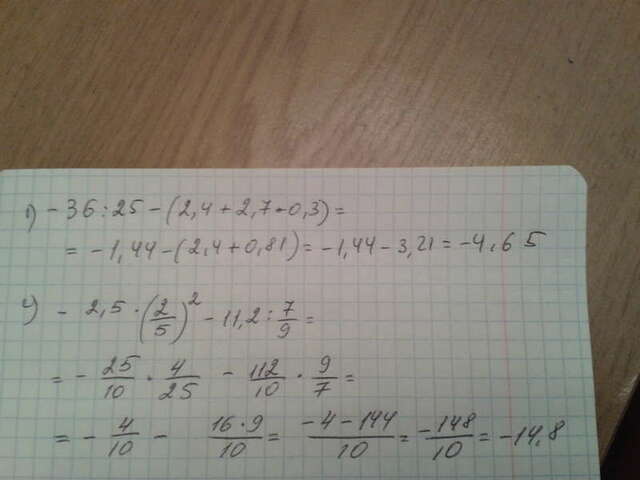 1) -36:25-(2,4+2,7·0,3)=
= -1,44-(2,4+0,81)= -1,44-3,21= -4,65
4) - 2,5·(2/5)² - 11,2:7/9=
= - 25/10 · 4/25 - 112/10 · 9/7 =
= - 4/10 - 16·9/10 = -4-144/10 = -148/10 = -14,8